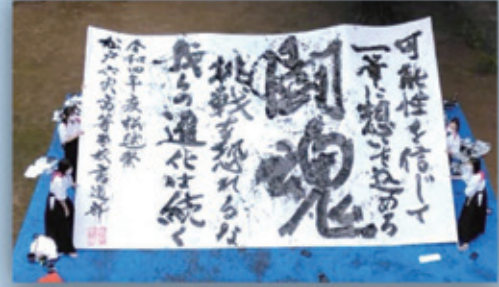 可能性を信じて
一筆に想いを込める
闘魂
挑戦を恐れるな
我らの進化は続く
令和四年度松逈祭
松戸六実高等学校書道部